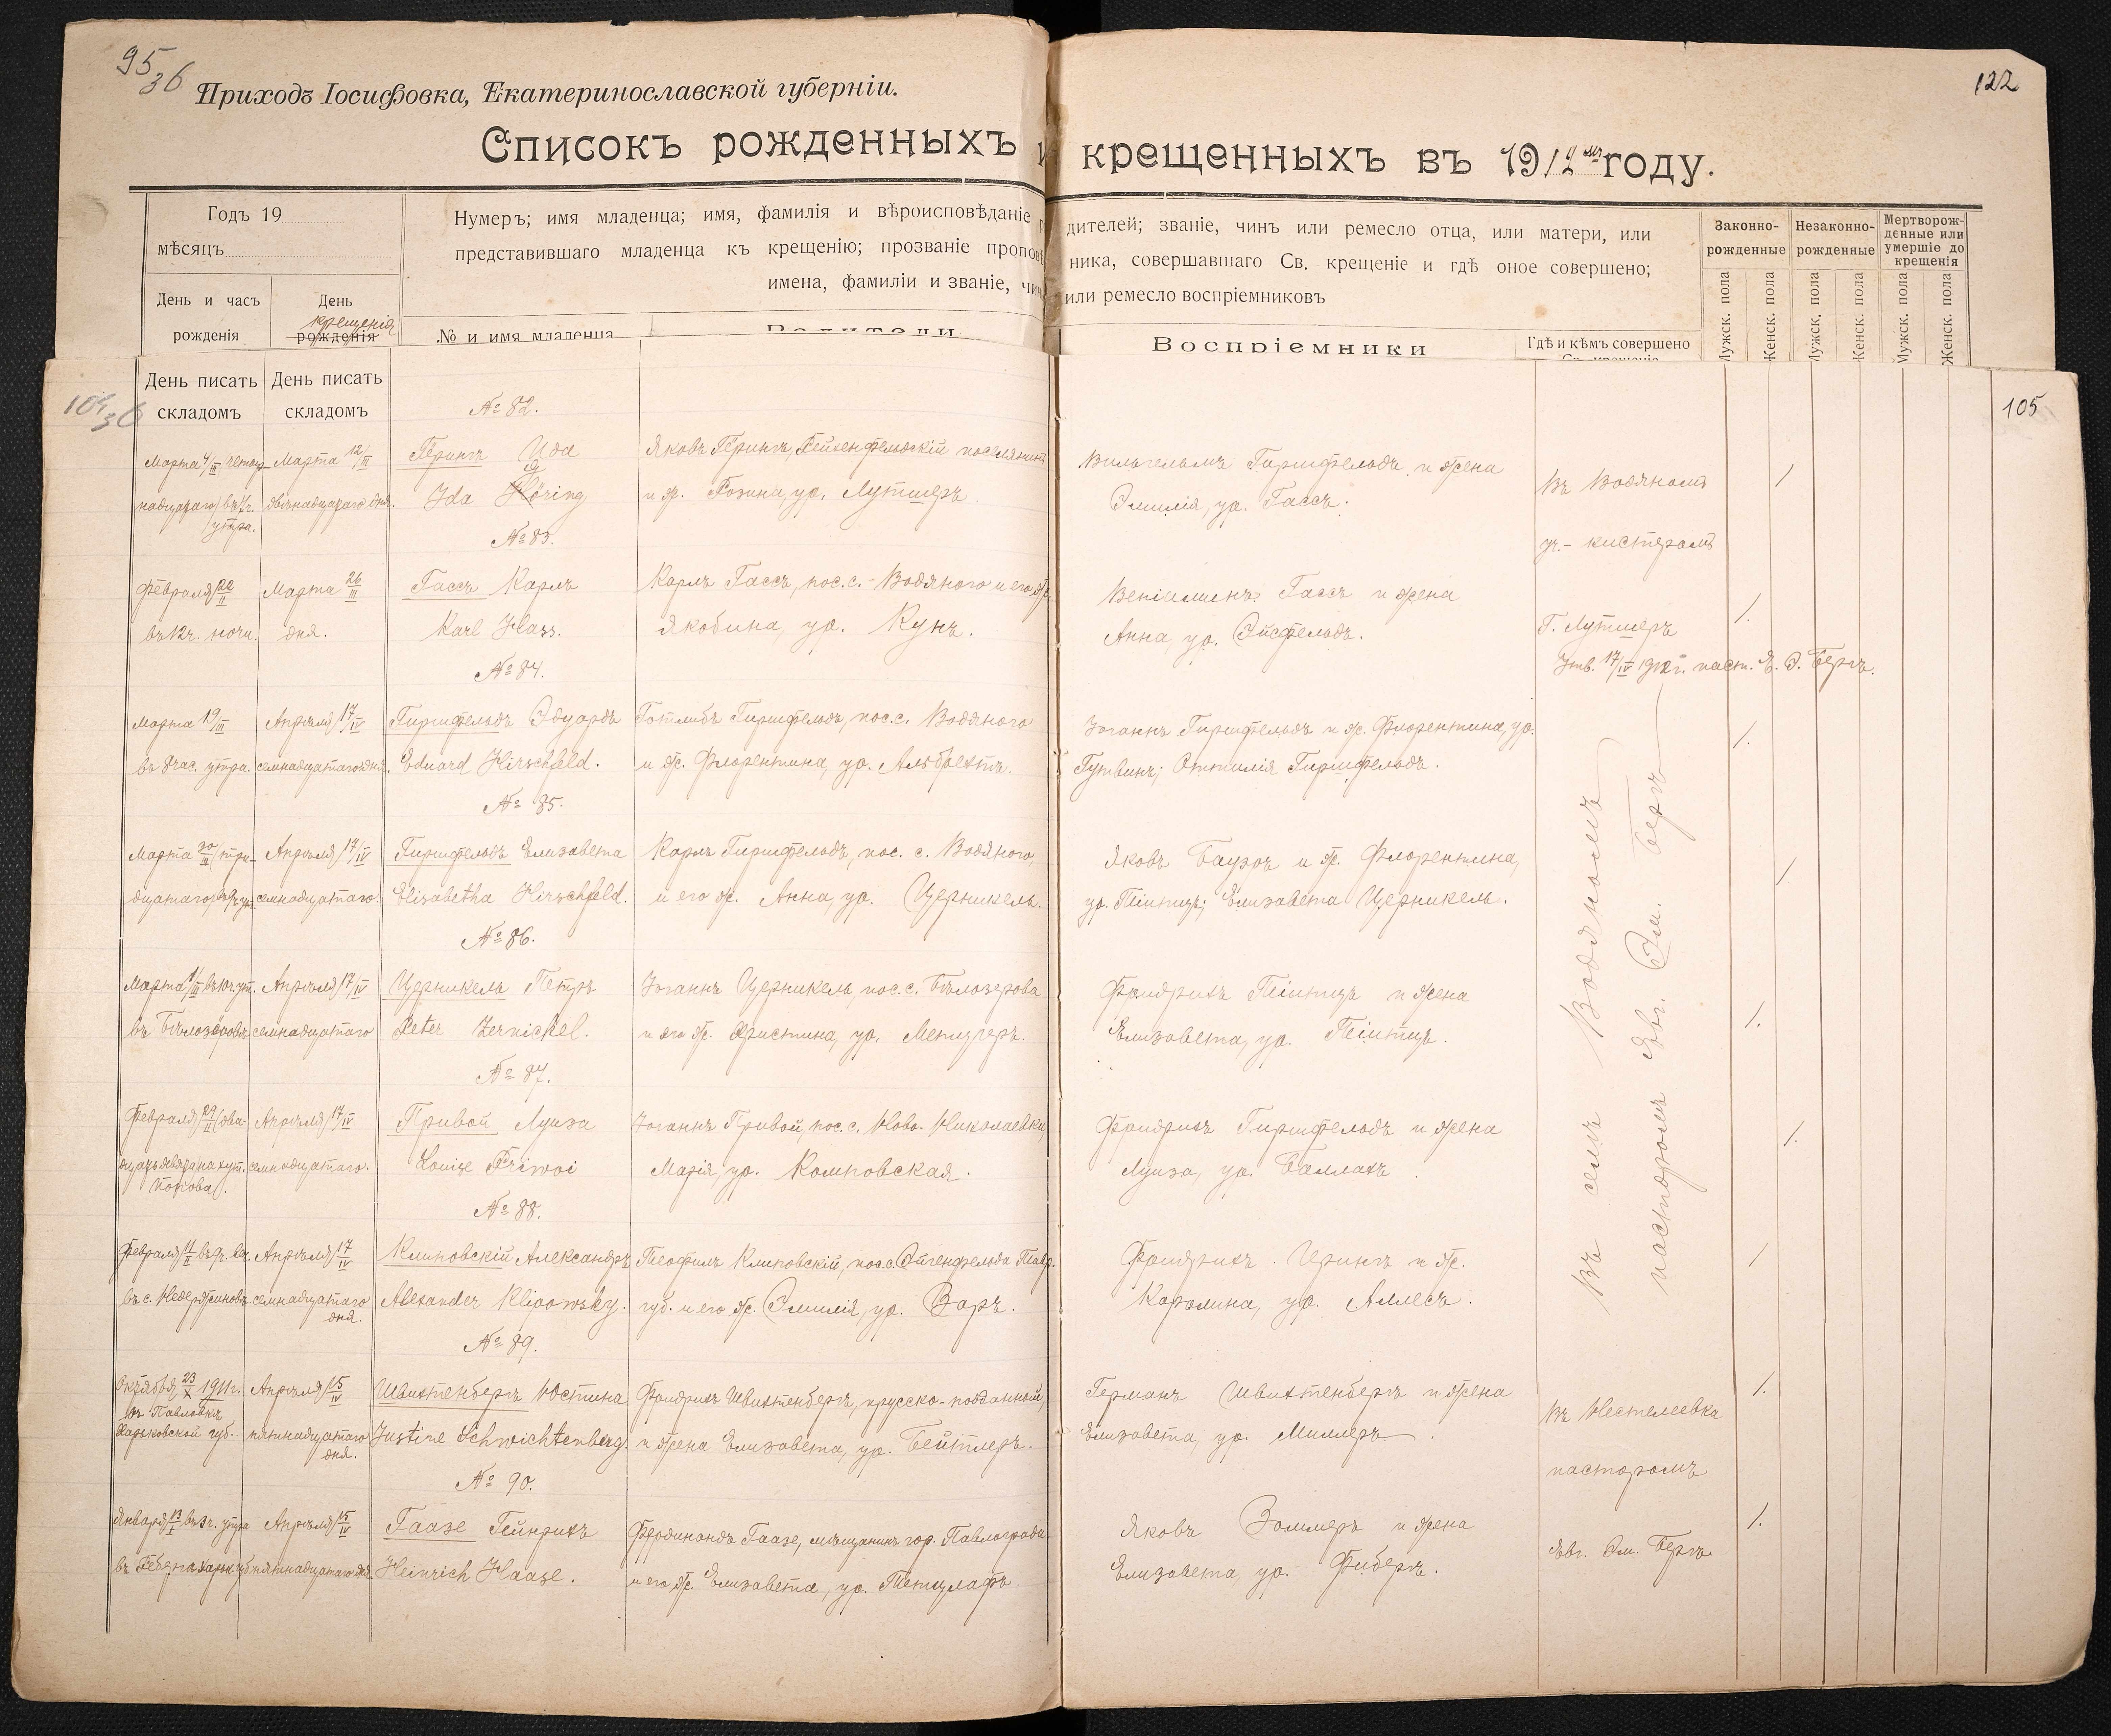 95
36
122
Приходъ Іосифовка, Екатеринославской губерніи.
Списокъ рожденныхъ и крещенныхъ въ 1912 году.
Годъ 19
мѣсяцъ
Нумеръ; имя младенца; имя, фамилія и вѣроисповѣданіе родителей; званіе, чинъ или ремесло отца, или матери, или
представившаго младенца къ крещенію; прозваніе проповѣдника, совершавшаго Св. крещеніе и гдѣ оное совершено;
имена, фамиліи и званіе, чинъ или ремесло воспріемниковъ
Законно-
рожденные
Незаконно-
рожденные
Мертворож-
денные или
умершіе до
крещенія
День и часъ
рожденія
День
крещенія
рожденія
№ и имя младенца
Родители
Воспріемники
Гдѣ и кѣмъ совершено
Св. крещеніе
Мужск. пола
Женск. пола
Мужск. пола
Женск. пола
Мужск. пола
Женск. пола
День писать
складомъ
День писать
складомъ
105
№ 82.
Марта 4/III
надцатаго
утра.
Марта 12/III
двѣнадцатаго дня.
Герингъ Ида
Ida Höring
Яковъ Герингъ, поселянинъ
и ж. Розина, ур. Лутшеръ
Вильгельмъ Гиршфельдъ и жена
Эмилія, ур. Гассъ.
Въ Водяномъ
уч.- кистеромъ
Г. Лутшеръ
Утв. 17/IV 1912 г. паст. Е. Э. Бергъ.
1
№ 83.
Февраля 22/II
въ 12 ч. ночи.
Марта 26/III
дня.
Гассъ Карлъ
Karl Hass.
Карлъ Гассъ, пос. с. Водяного и его ж.
Якобина, ур. Кунъ.
Веніаминъ Гассъ и жена
Анна, ур. Эйсфельдъ.
1.
№ 84.
Марта 19/III
въ 8 час. утра.
Апрѣля 17/IV
семнадцатаго дня.
Гиршфельдъ Эдуардъ
Eduard Hirschfeld.
Готлибъ Гиршфельдъ, пос. с. Водяного
и ж. Флорентина, ур. Альбрехтъ.
Іоганнъ Гиршфельдъ и ж. Флорентина, ур.
Гутвинъ; Оттилія Гиршфельдъ.
1.
Въ селѣ Водяномъ
пасторомъ Евг. Эм. Бергъ
№ 85.
Марта 30/III (три-
дцатаго)
Апрѣля 17/IV
семнадцатаго
Гиршфельдъ Елизавета
Elisabetha Hirschfeld.
Карлъ Гиршфельдъ, пос. с. Водяного,
и его ж. Анна, ур. Церникель.
Яковъ Баузоч и ж. Флорентина,
ур. Пейтцъ; Елизавета Церникель.
1
№ 86.
Марта 1/III въ 10 ч. ут.
въ Бѣлозеровѣ
Апрѣля 17/IV
семнадцатаго
Церникель Петръ
Peter Zernickel.
Іоганнъ Церникель, пос. с. Бѣлозерова
и его ж. Христина, ур. Метцгеръ.
Фридрихъ Пейтцъ и жена
Елизавета, ур. Пейтцъ.
1.
№ 87.
Февраля 29/II (два-
Попова).
Апрѣля 17/IV
семнадцатаго.
Привой Луиза
Louise Priwoi
Іоганнъ Привой, пос. с. Ново-Николаевки,
Марія, ур. Комповская.
Фридрихъ Гиршфельдъ и жена
Луиза, ур. Баллахъ.
1.
№ 88.
Февраля 11/II
въ с.
Апрѣля 17/IV
семнадцатаго
дня.
Клиповскій Александръ
Alexander Klipowsky.
Теофилъ Клиповскій, пос. с. Эйгенфельда Тавр.
губ. и его ж. Эмилія, ур. Заръ.
Фридрихъ Герингъ и ж.
Каролина, ур. Аллесъ.
1
№ 89.
Октября 23/X 1911 г.
въ Павловкѣ
Харьковской губ.
Апрѣля 15/IV
пятнадцатаго
дня.
Швихтенбергъ Юстина
Justine Schwichtenberg.
Фридрихъ Швихтенбергъ, прусско-подданный,
и жена Елизавета, ур. Бейтлеръ.
Германъ Швихтенбергъ и жена
Елизавета, ур. Миллеръ.
Въ Нестелеевка
пасторомъ
Евг. Эм. Бергъ
1.
№ 90.
Января 13/I въ 3 ч. утра
Апрѣля 15/IV
пятнадцатаго дня
Гаазе Гейнрихъ
Heinrich Haase.
Фердинандъ Гаазе, мѣщанинъ гор. Павлограда
и его ж. Елизавета, ур. Петцлафъ.
Яковъ Зоммеръ и жена
Елизавета, ур. Фибергъ.
1.